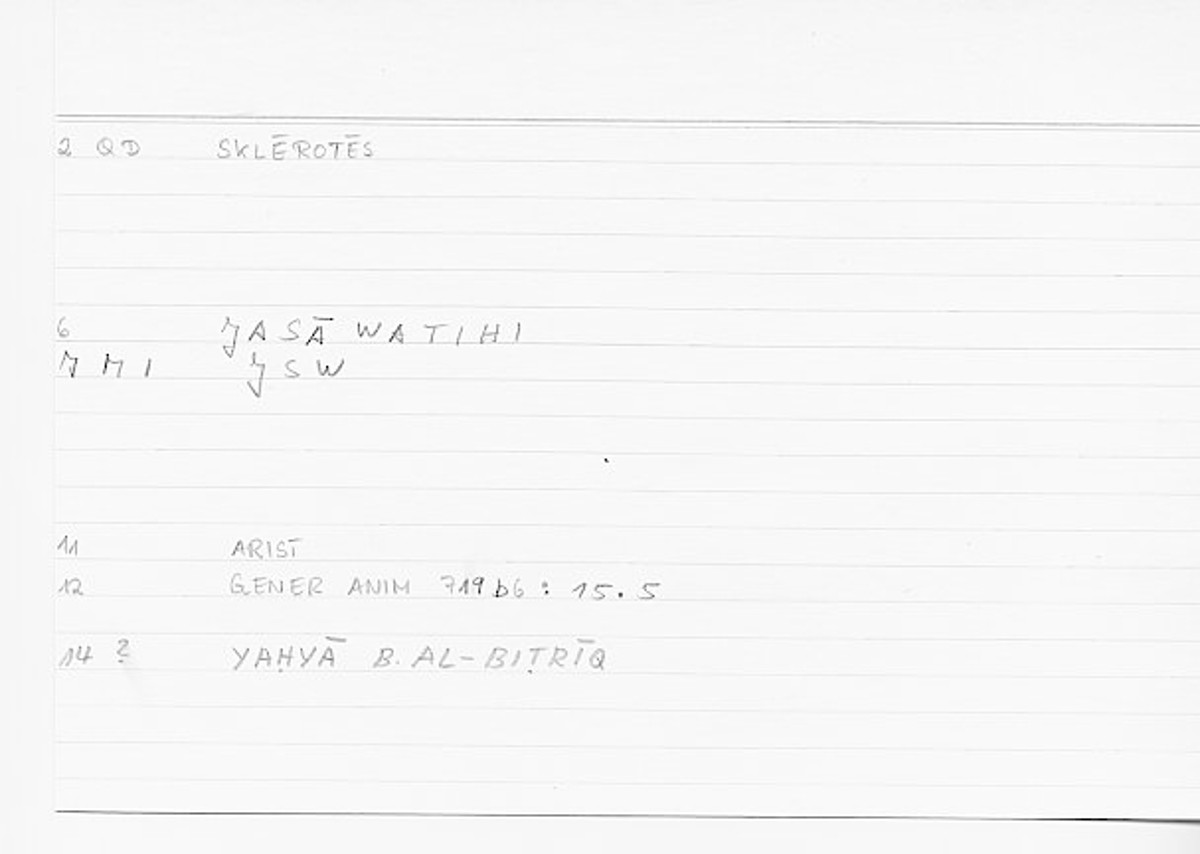 2 QD SKLĒROTĒS
6 JASĀWATIHI
7 M I JSW
11 ARIST
12 GENER ANIM 719b6 : 15.5
14 ? YAḤYĀ B. AL-BIṬRĪQ